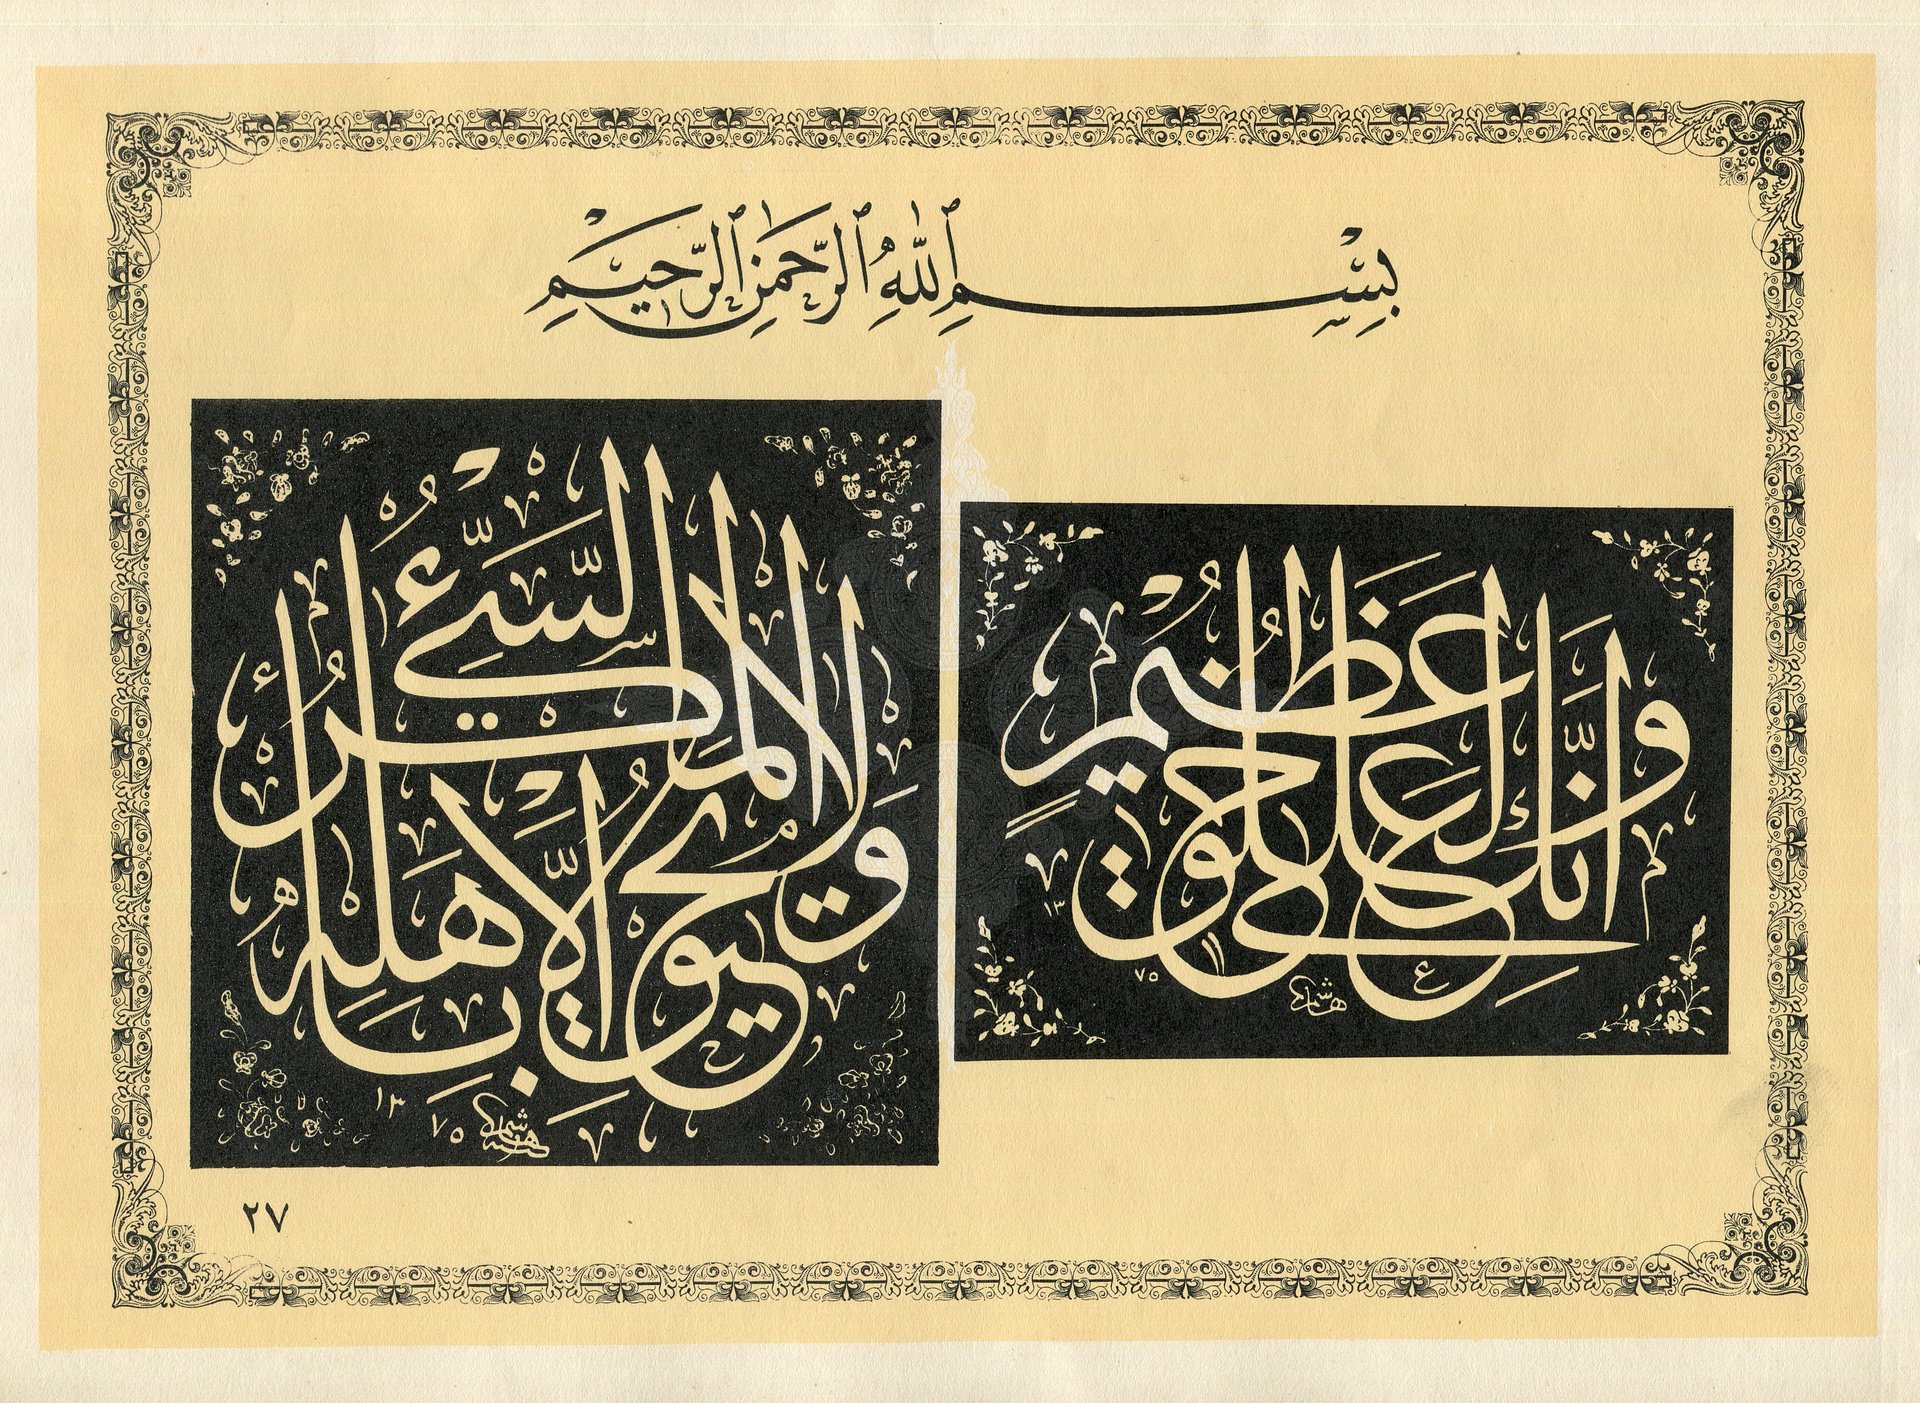 بِسْمِ ٱللَّهِ ٱلرَّحْمَنِ ٱلرَّحِيمِ
وَإِنَّكَ لَعَلَىٰ خُلُقٍ عَظِيمٍ
هاشم
١٣٧٥
وَلَا يَحِيقُ الْمَكْرُ السَّيِّئُ إِلَّا بِأَهْلِهِ
هاشم
١٣٧٥
٢٧